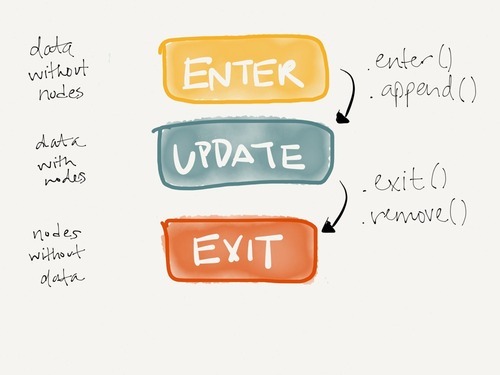 data
without
nodes
ENTER
.enter()
.append()
data
with
nodes
UPDATE
.exit()
.remove()
nodes
without
data
EXIT